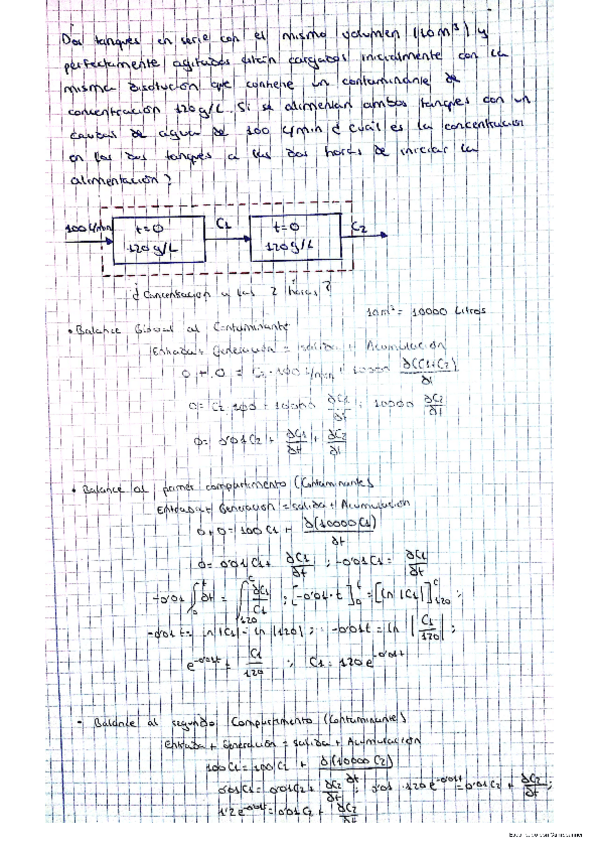 Dos tanques en serie con el mismo volumen (10m³) y
perfectamente agitados están cargados inicialmente con la
misma disolución que contiene un contaminante de
concentración 120g/L. Si se alimentan ambos tanques con un
caudal de agua de 100 L/min ¿ cuál es la concentración
en los dos tanques a las dos horas de iniciar la
alimentación ?
100 L/min t=0 120 g/L C1 t=0 120 g/L C2
¿ Concentración a las 2 horas ?
10m³ = 10000 Litros
• Balance Global al Contaminante
Entrada + Generación = Salida + Acumulación
0 + 0 = C2 · 100 L/min + 10000 ∂(C1+C2)/∂t
0 = C2 · 100 + 10000 ∂C1/∂t + 10000 ∂C2/∂t
0 = 0'01 C2 + ∂C1/∂t + ∂C2/∂t
• Balance al primer compartimento (Contaminante)
Entrada + Generación = Salida + Acumulación
0 + 0 = 100 C1 + ∂(10000 C1)/∂t
0 = 0'01 C1 + ∂C1/∂t ; -0'01 C1 = ∂C1/∂t
-0'01 ∫₀ᵗ ∂t = ∫₁₂₀ᶜ ∂C1/C1 ; [-0'01 · t]₀ᵗ = [ln |C1|]₁₂₀ᶜ ;
-0'01t = ln |C1| - ln |120| ; -0'01t = ln |C1/120| ;
e^-0'01t = C1/120 ; C1 = 120 e^-0'01t
• Balance al segundo Compartimento (Contaminante)
Entrada + Generación = Salida + Acumulación
100 C1 = 100 C2 + ∂(10000 C2)/∂t
0'01 C1 = 0'01 C2 + ∂C2/∂t ; 0'01 · 120 e^-0'01t = 0'01 C2 + ∂C2/∂t ;
1'2 e^-0'01t = 0'01 C2 + ∂C2/∂t